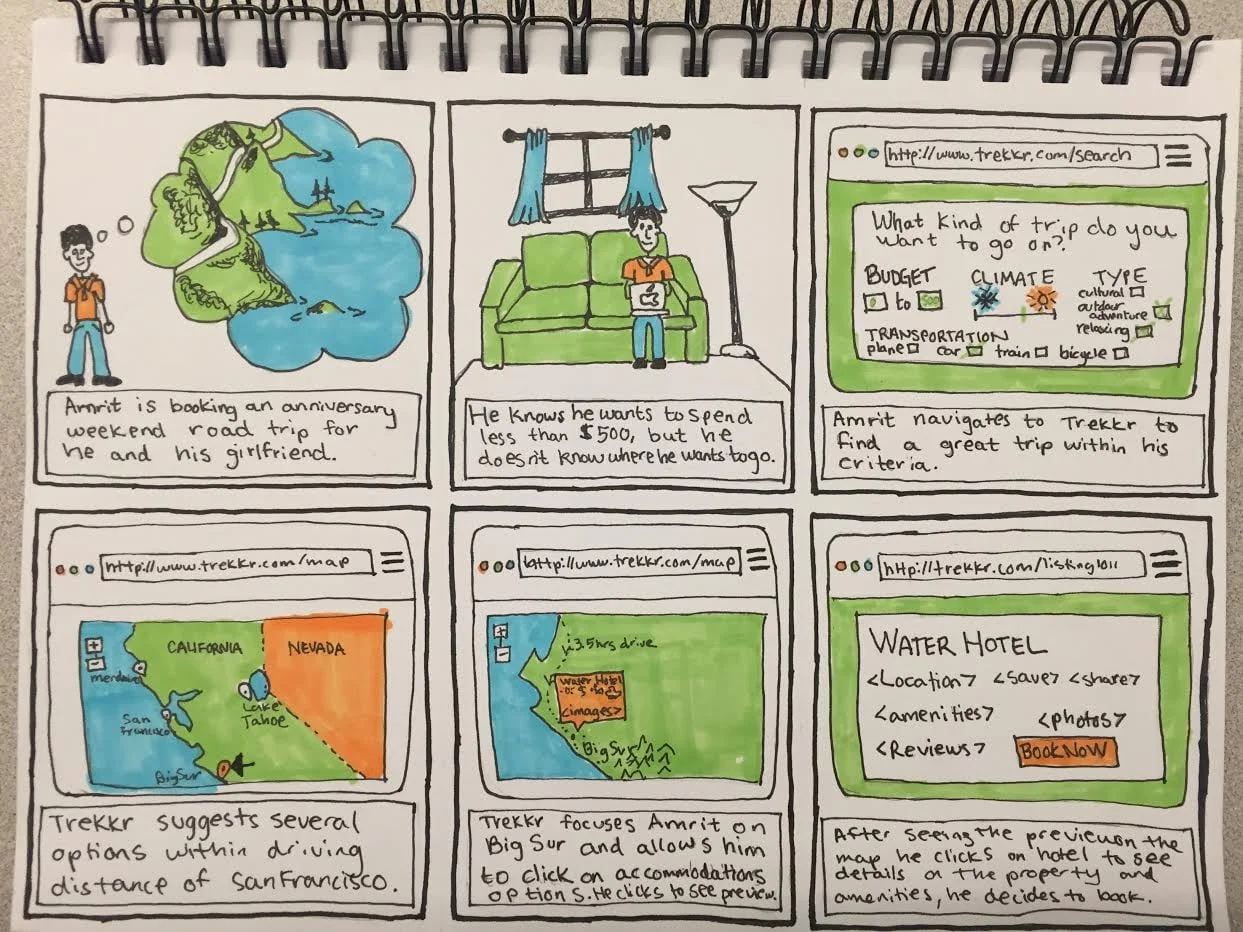 Amrit is booking an anniversary
weekend road trip for
he and his girlfriend.
He knows he wants to spend
less than $500, but he
doesn't know where he wants to go.
http://www.trekkr.com/search
What kind of trip do you
want to go on?
BUDGET
0 to 500
CLIMATE
TYPE
cultural
outdoor
adventure
relaxing
TRANSPORTATION
plane car train bicycle
Amrit navigates to Trekkr to
find a great trip within his
criteria.
http://www.trekkr.com/map
+
-
CALIFORNIA
NEVADA
San
Francisco
Lake
Tahoe
Big Sur
Trekkr suggests several
options within driving
distance of San Francisco.
http://www.trekkr.com/map
+
-
3.5hrs drive
Water Hotel
<images>
Big Sur
Trekkr focuses Amrit on
Big Sur and allows him
to click on accommodations
options. He clicks to see preview.
http://trekkr.com/listing1011
WATER HOTEL
<Location> <save> <share>
<amenities> <photos>
<Reviews> BOOK NOW
After seeing the preview on the
map he clicks on hotel to see
details on the property and
amenities, he decides to book.